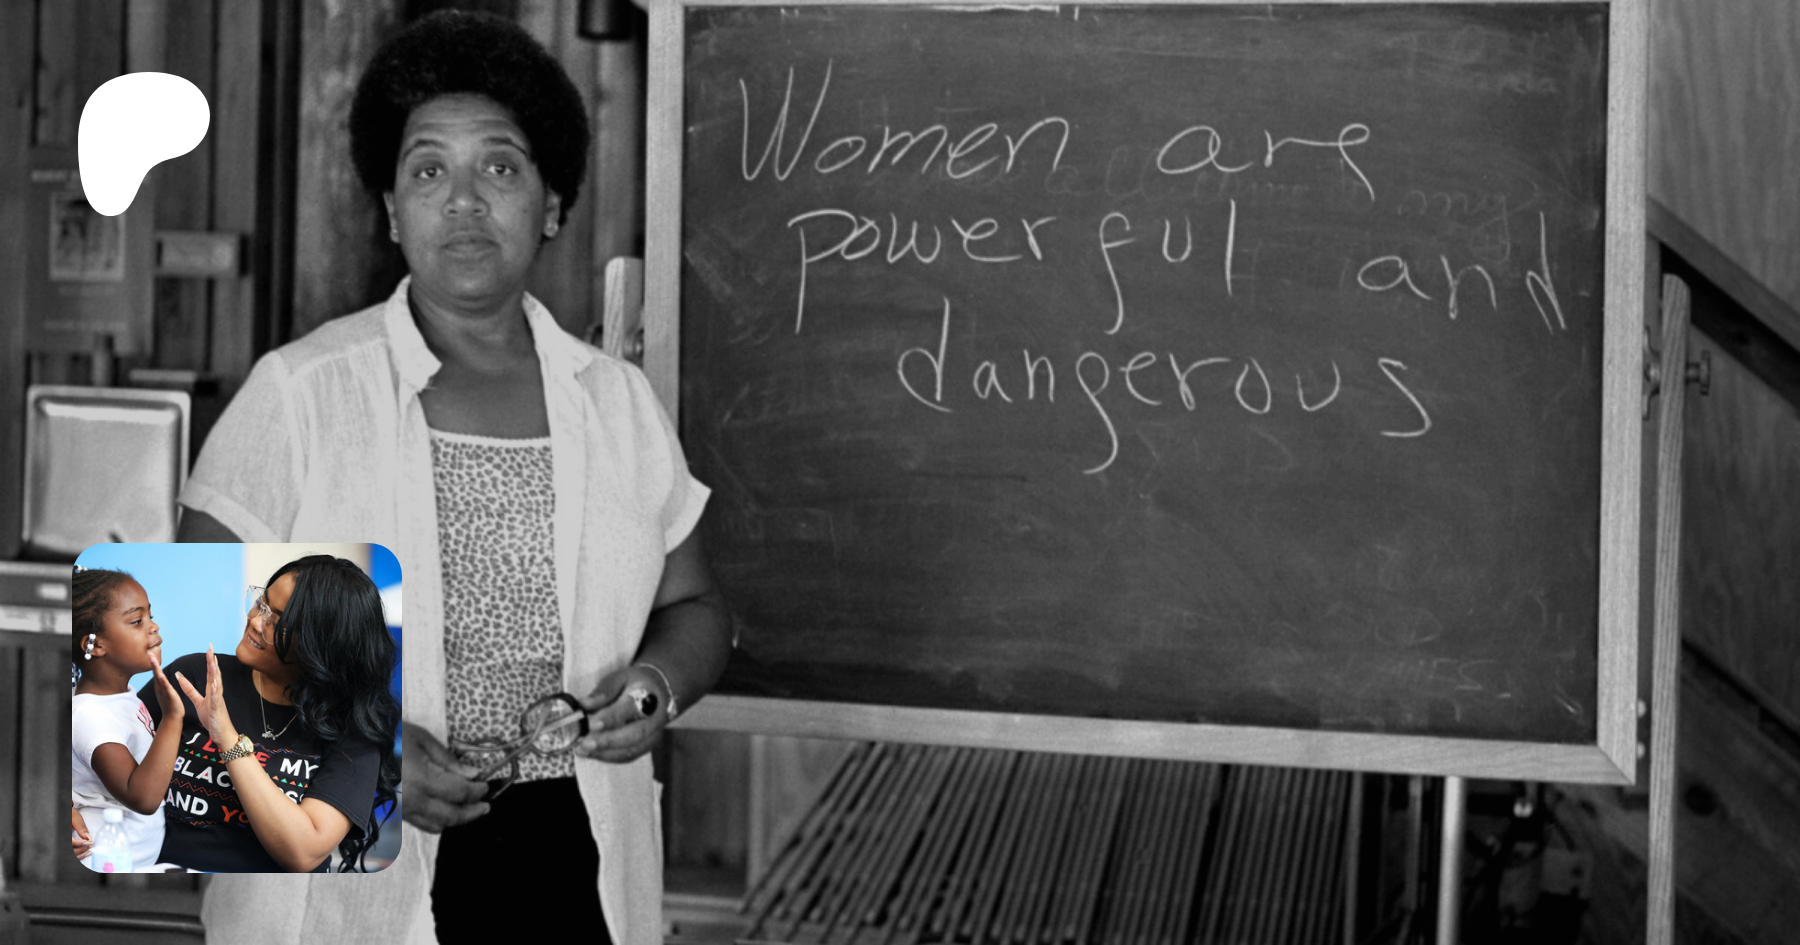 Women are
powerful and
dangerous
MY
AND